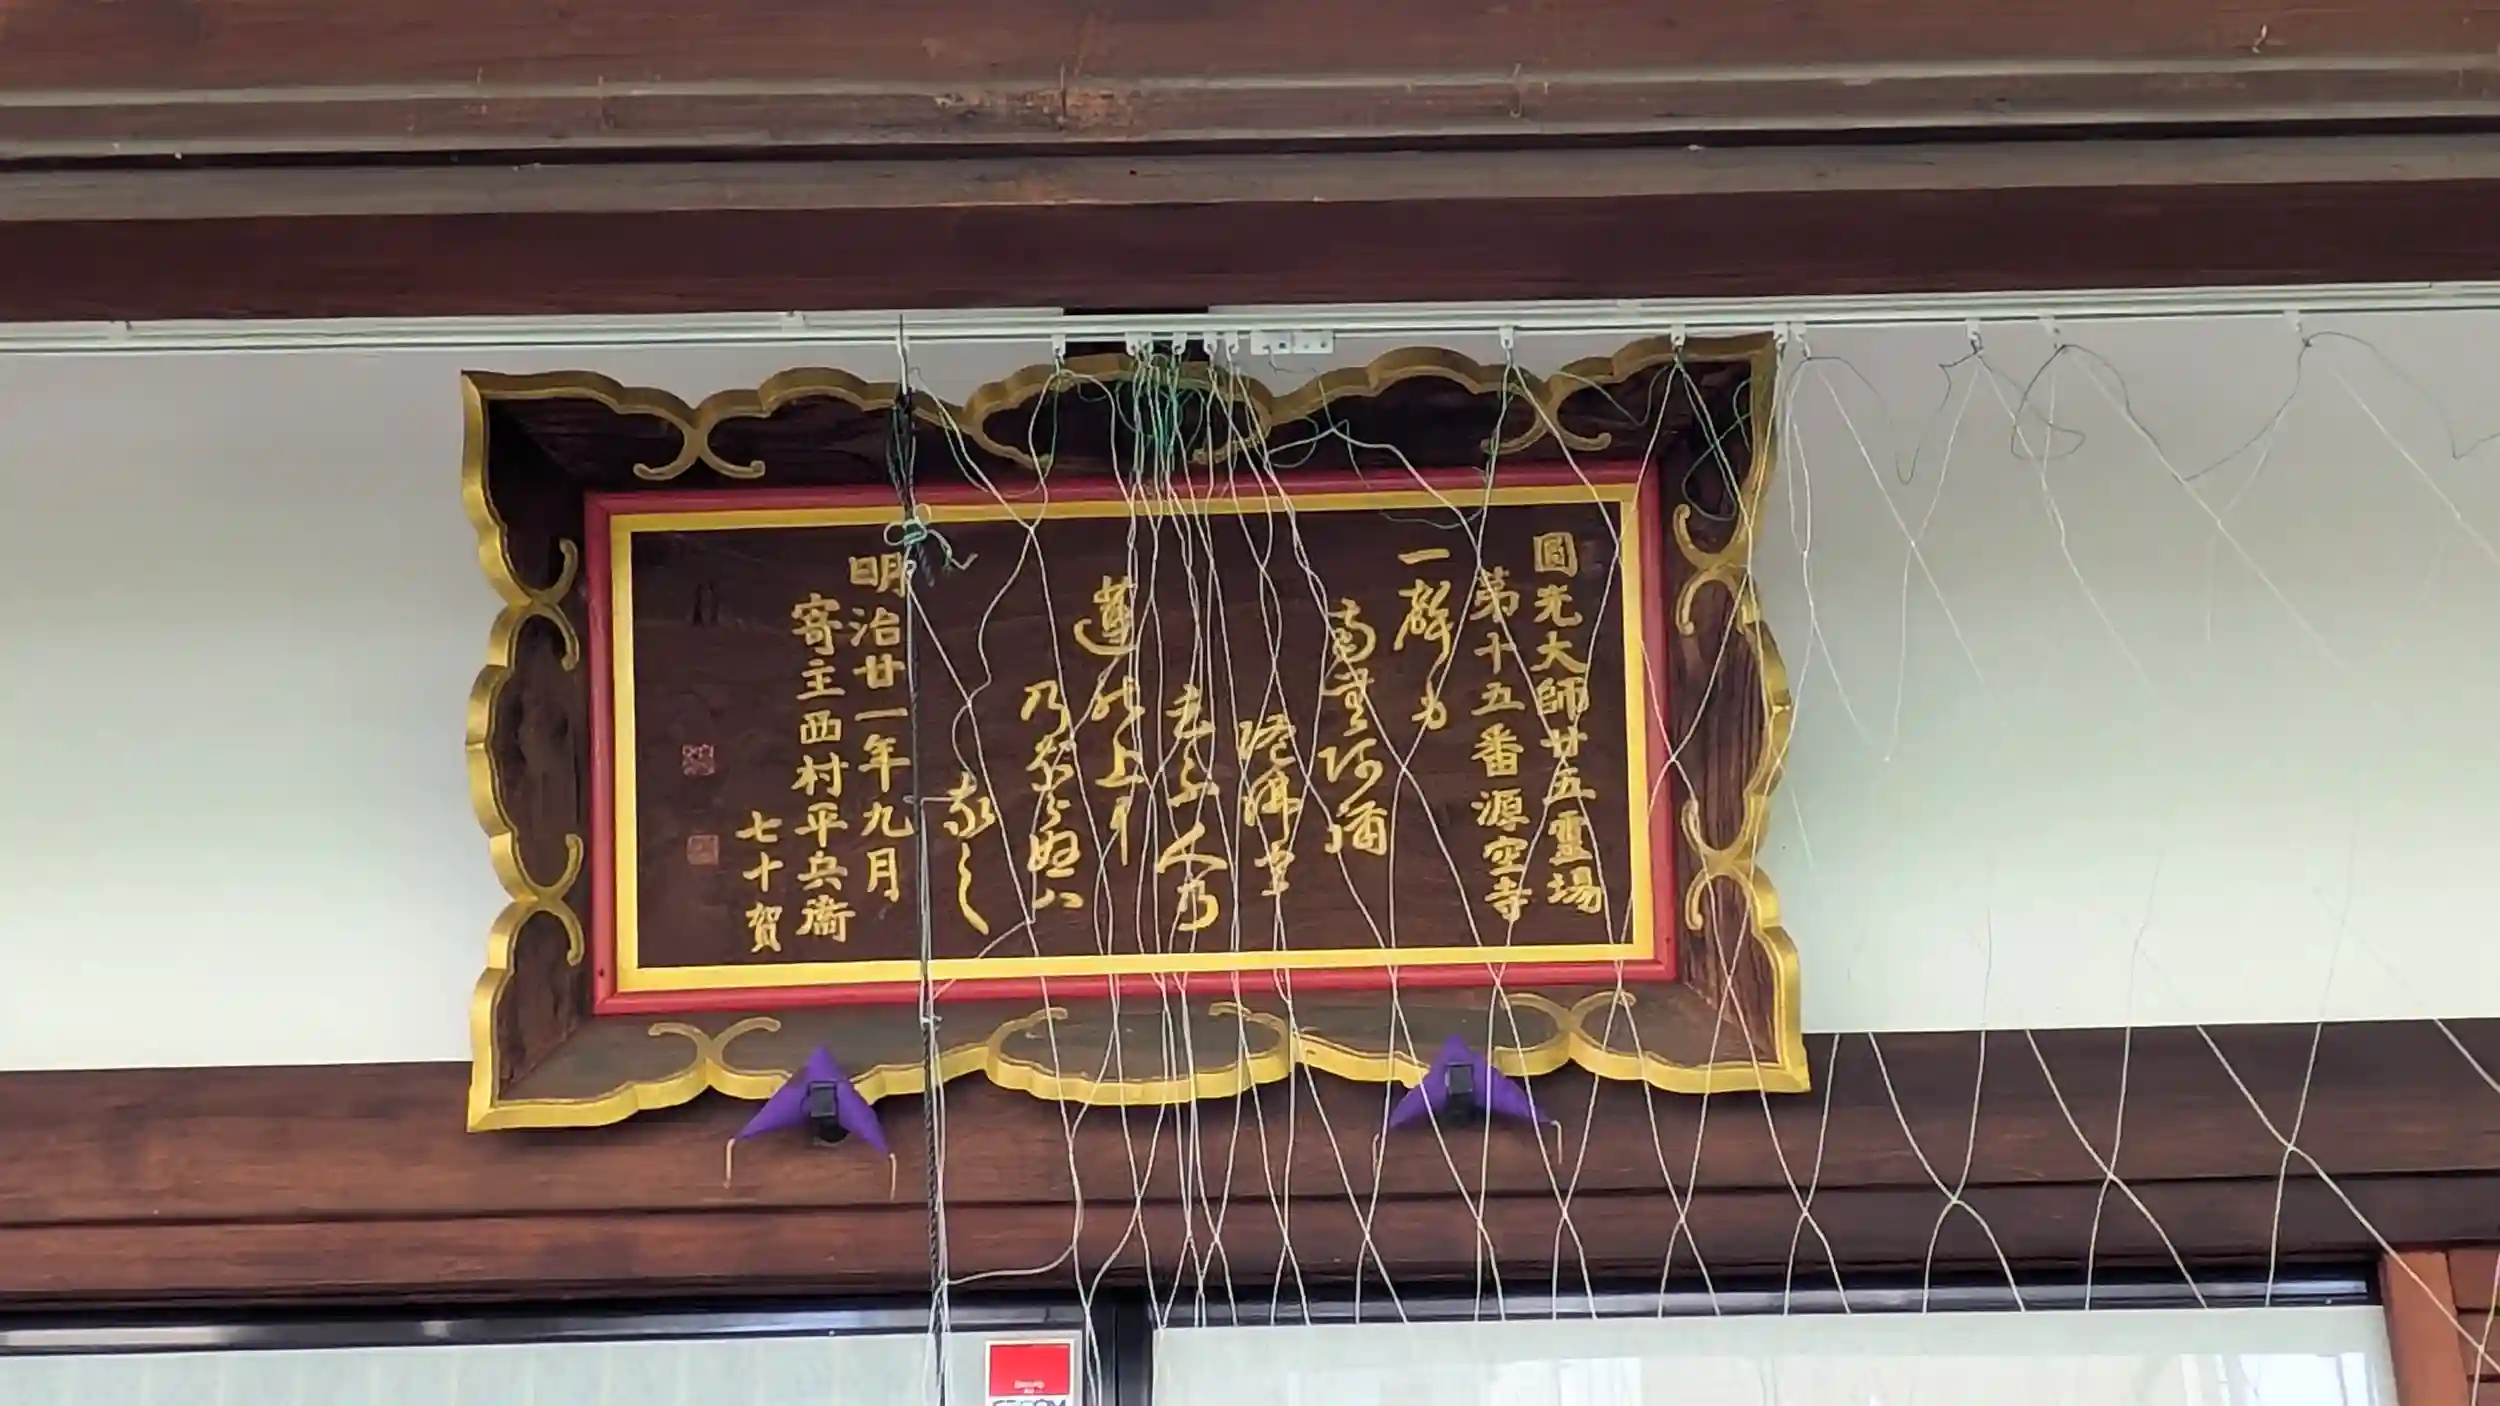 圓光大師廿五霊場
第十五番源空寺
一聲も
南無阿彌
陀佛と
いふ人乃
蓮能上耳
乃本らぬハ
なし
明治廿一年九月
寄主西村平兵衞
七十賀
SECOM